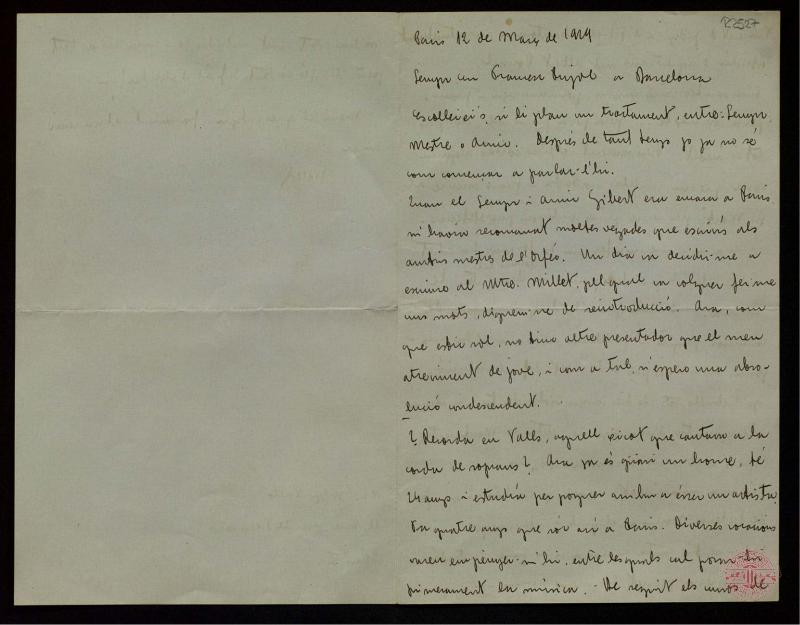 R2527
Paris 12 de Març de 1924
Senyor en Francesc Pujol a Barcelona
Escolleixi's, si li plau un tractament, entre: Senyor,
Mestre o Amic. Després de tant temps jo ja no sé
com començar a parlar-l'hi.
Quan el Senyor i amic Gibert era encara a Paris
m'havia recomanat moltes vegades que escrivís als
antics mestres de l'Orfeó. Un dia va decidir-me a
escriure al Mtre. Millet, pel qual va volguer fer-me
uns mots, diguem-ne de reintroducció. Ara, com
que estic sol, no tinc altre presentador que el meu
atreviment de jove, i com a tal, n'espero una abso-
lució condescendent.
? Recorda en Valls, aquell xicot que cantava a la
corda de soprans? Ara ja és quasi un home, té
24 anys i estudía per poguer arribar a ésser un artista.
Fa quatre anys que sóc aci a Paris. Diverses vocacions
varen empènyer-m'hi, entre les quals cal posar-hi
primerament la música. - He seguit els cursos de